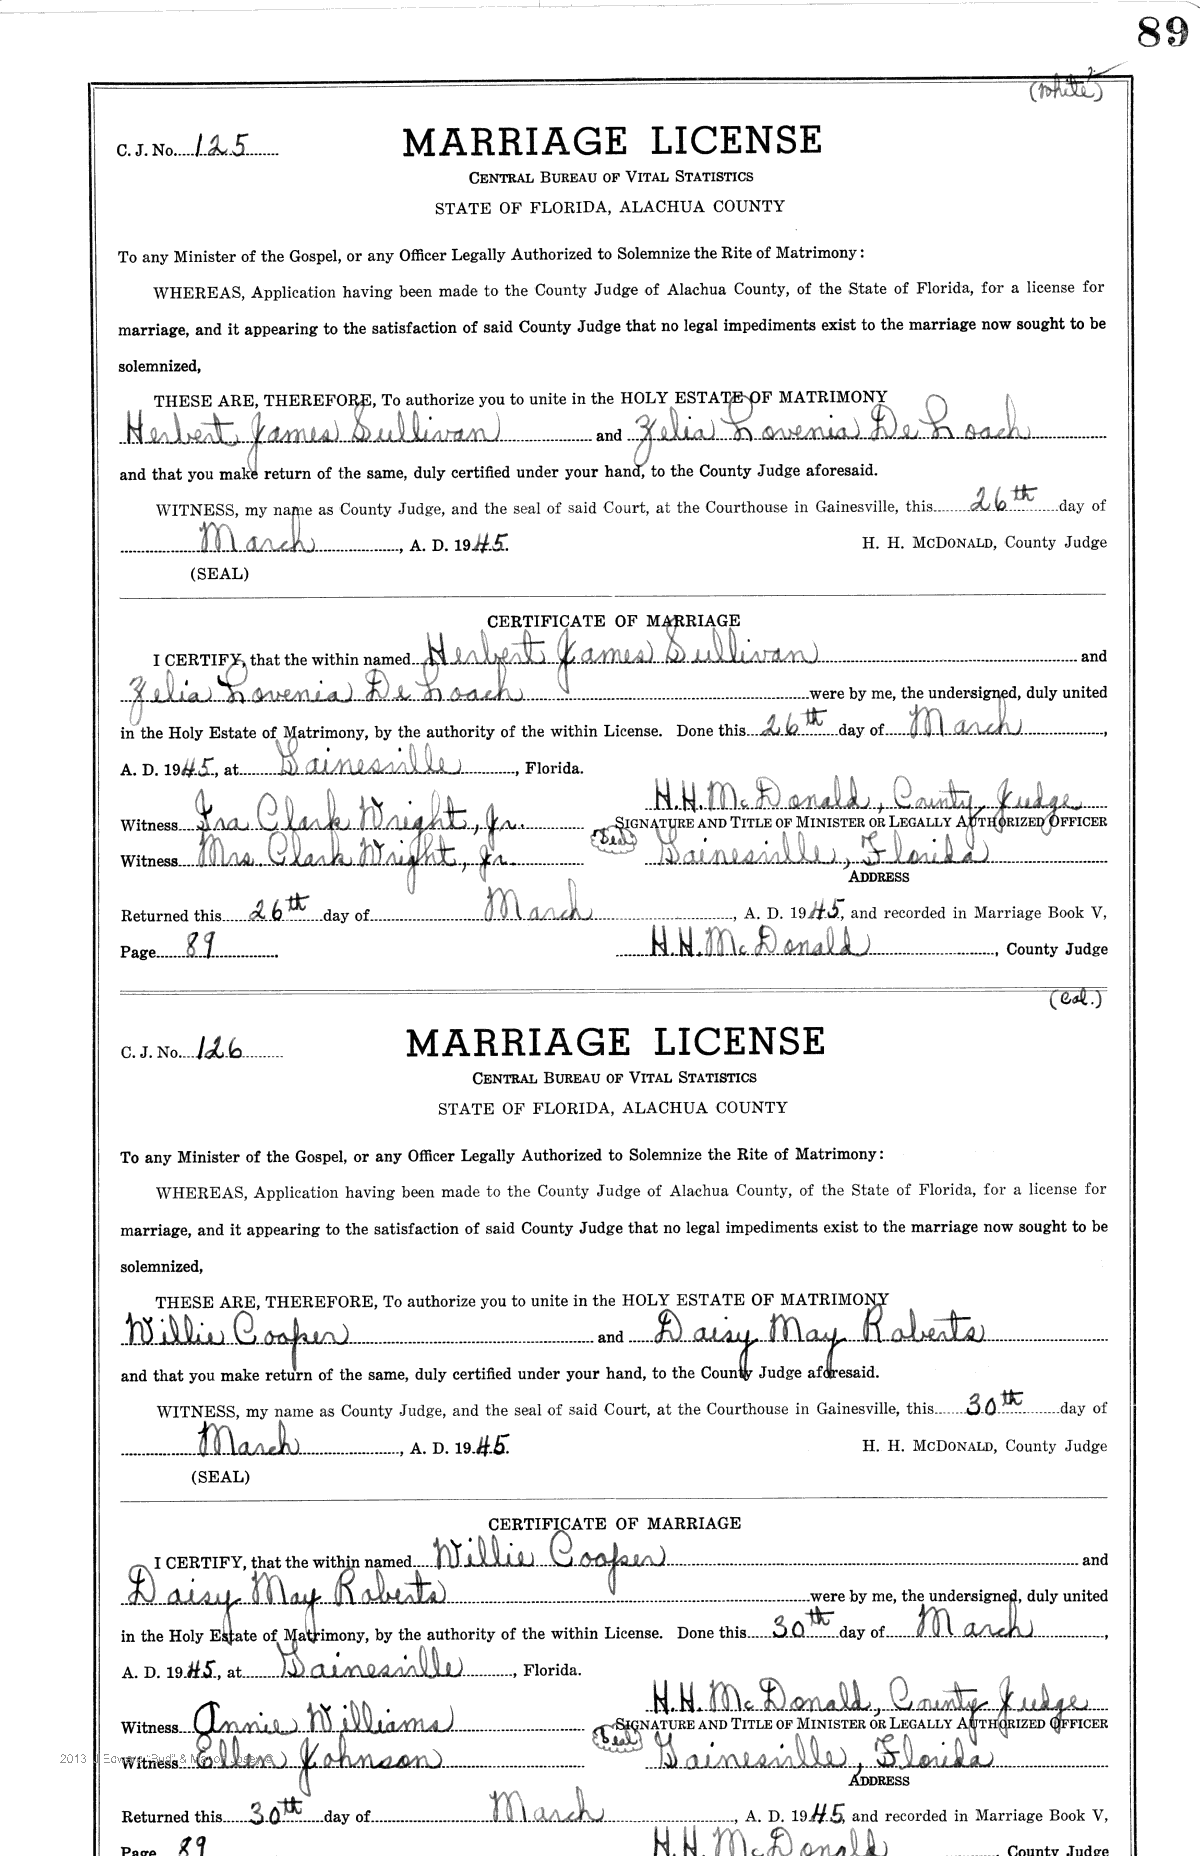 89
(White)
C. J. No. 125
MARRIAGE LICENSE
CENTRAL BUREAU OF VITAL STATISTICS
STATE OF FLORIDA, ALACHUA COUNTY
To any Minister of the Gospel, or any Officer Legally Authorized to Solemnize the Rite of Matrimony:
WHEREAS, Application having been made to the County Judge of Alachua County, of the State of Florida, for a license for
marriage, and it appearing to the satisfaction of said County Judge that no legal impediments exist to the marriage now sought to be
solemnized,
THESE ARE, THEREFORE, To authorize you to unite in the HOLY ESTATE OF MATRIMONY
Herbert James Sullivan and Zelia Lovenia De Loach
and that you make return of the same, duly certified under your hand, to the County Judge aforesaid.
WITNESS, my name as County Judge, and the seal of said Court, at the Courthouse in Gainesville, this 26th day of
March, A. D. 1945. H. H. McDONALD, County Judge
(SEAL)
CERTIFICATE OF MARRIAGE
I CERTIFY, that the within named Herbert James Sullivan and
Zelia Lovenia De Loach were by me, the undersigned, duly united
in the Holy Estate of Matrimony, by the authority of the within License. Done this 26th day of March,
A. D. 1945, at Gainesville, Florida.
H. H. McDonald, County Judge
Witness Ira Clark Wright, Jr. SIGNATURE AND TITLE OF MINISTER OR LEGALLY AUTHORIZED OFFICER
Witness Mrs. Clark Wright, Jr. (Seal) Gainesville, Florida
ADDRESS
Returned this 26th day of March, A. D. 1945, and recorded in Marriage Book V,
Page 89. H. H. McDonald, County Judge
(Col.)
C. J. No. 126
MARRIAGE LICENSE
CENTRAL BUREAU OF VITAL STATISTICS
STATE OF FLORIDA, ALACHUA COUNTY
To any Minister of the Gospel, or any Officer Legally Authorized to Solemnize the Rite of Matrimony:
WHEREAS, Application having been made to the County Judge of Alachua County, of the State of Florida, for a license for
marriage, and it appearing to the satisfaction of said County Judge that no legal impediments exist to the marriage now sought to be
solemnized,
THESE ARE, THEREFORE, To authorize you to unite in the HOLY ESTATE OF MATRIMONY
Willie Cooper and Daisy May Roberts
and that you make return of the same, duly certified under your hand, to the County Judge aforesaid.
WITNESS, my name as County Judge, and the seal of said Court, at the Courthouse in Gainesville, this 30th day of
March, A. D. 1945. H. H. McDONALD, County Judge
(SEAL)
CERTIFICATE OF MARRIAGE
I CERTIFY, that the within named Willie Cooper and
Daisy May Roberts were by me, the undersigned, duly united
in the Holy Estate of Matrimony, by the authority of the within License. Done this 30th day of March,
A. D. 1945, at Gainesville, Florida.
H. H. McDonald, County Judge
Witness Annie Williams SIGNATURE AND TITLE OF MINISTER OR LEGALLY AUTHORIZED OFFICER
Witness Ellen Johnson (Seal) Gainesville, Florida
2013 J Edward "Bud" &
ADDRESS
Returned this 30th day of March, A. D. 1945, and recorded in Marriage Book V,
Page 89 H. H. McDonald County Judge